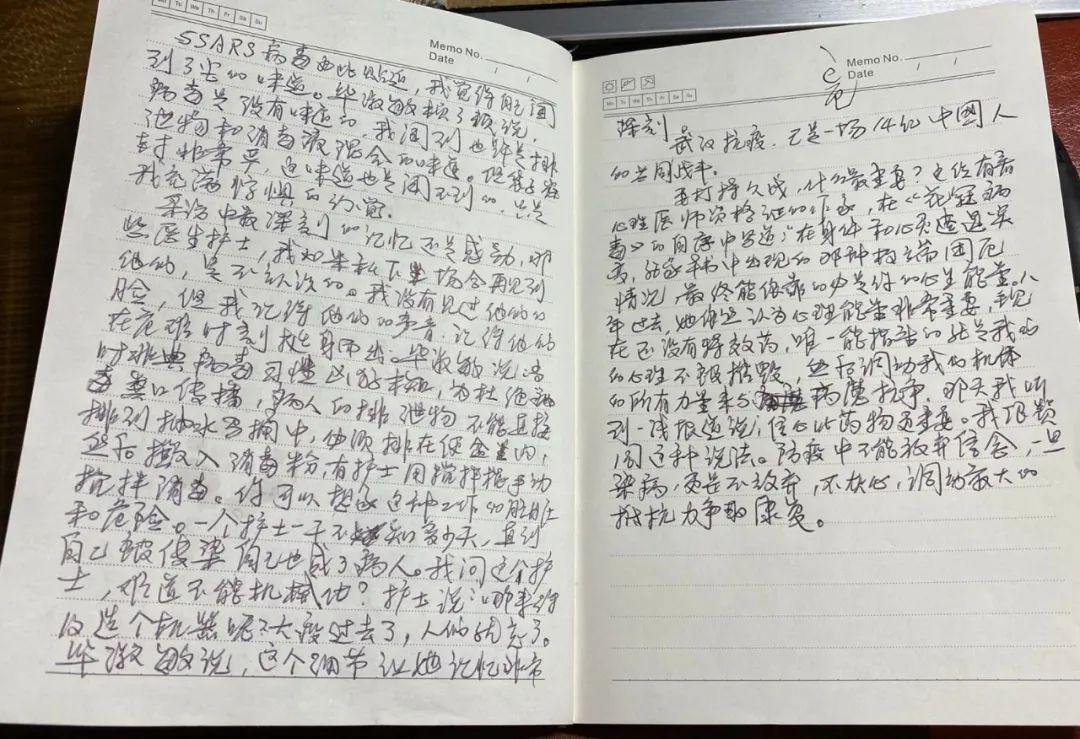 Mo Tu We Th Fr Sa Su
Memo No.
Date / /
与SARS病毒如此贴近，我觉得自己闻
到了它的味道。毕淑敏顿了顿说，
病毒是没有味道的，我闻到也许是排
泄物和消毒液混合的味道。但
封非常严，这味道也是闻不到的，只是
我充满惊惧的幻觉.
采访中最深刻的记忆还是感动，那
些医生护士，我如果私下场合再见到
他们，是不认识的。我没有见过他们的
脸，但我记得他们的声音，记得他们
在危难时刻挺身而出。毕淑敏说：当
时非典病毒可怕凶猛，为杜绝病
毒粪口传播，病人的排泄物不能直接
排到抽水马桶中，必须排在便盆里内，
然后撒入消毒粉，有护士用搅拌棍手动
搅拌消毒。你可以想象这种工作的肮脏
和危险。一个护士一干不知多少天，直到
自己被传染自己也成了病人。我问这个护
士，难道不能机械化？护士说：哪来得
及造个机器呢？大疫过去了，人们就忘了。
毕淑敏说，这个细节让她记忆非常
Memo No.
Date / /
Mo Tu We Th Fr Sa Su
深刻
武汉抗疫，已是一场14亿中国人
的共同战争。
要打持久战，什么最重要？也位有着
心理医师资格证的作家，在《花冠病
毒》的自序中写道："在身体和心灵遭遇突
变，就象书中出现的那种极端困厄
情况，最终能依靠的必是你的心生能量。八
年过去，她依还认为心理能量非常重要，现
在还没有特效药，唯一能指望的就是我们
的心理不被摧毁，然后调动我们机体
的所有力量来与病魔抗争。那天我听
到一线报道说，信心比药物还重要。我很赞
同这种说法。防疫中不能放弃信念，一旦
染病，更是不放弃，不灰心，调动最大的
抵抗力争取康复。